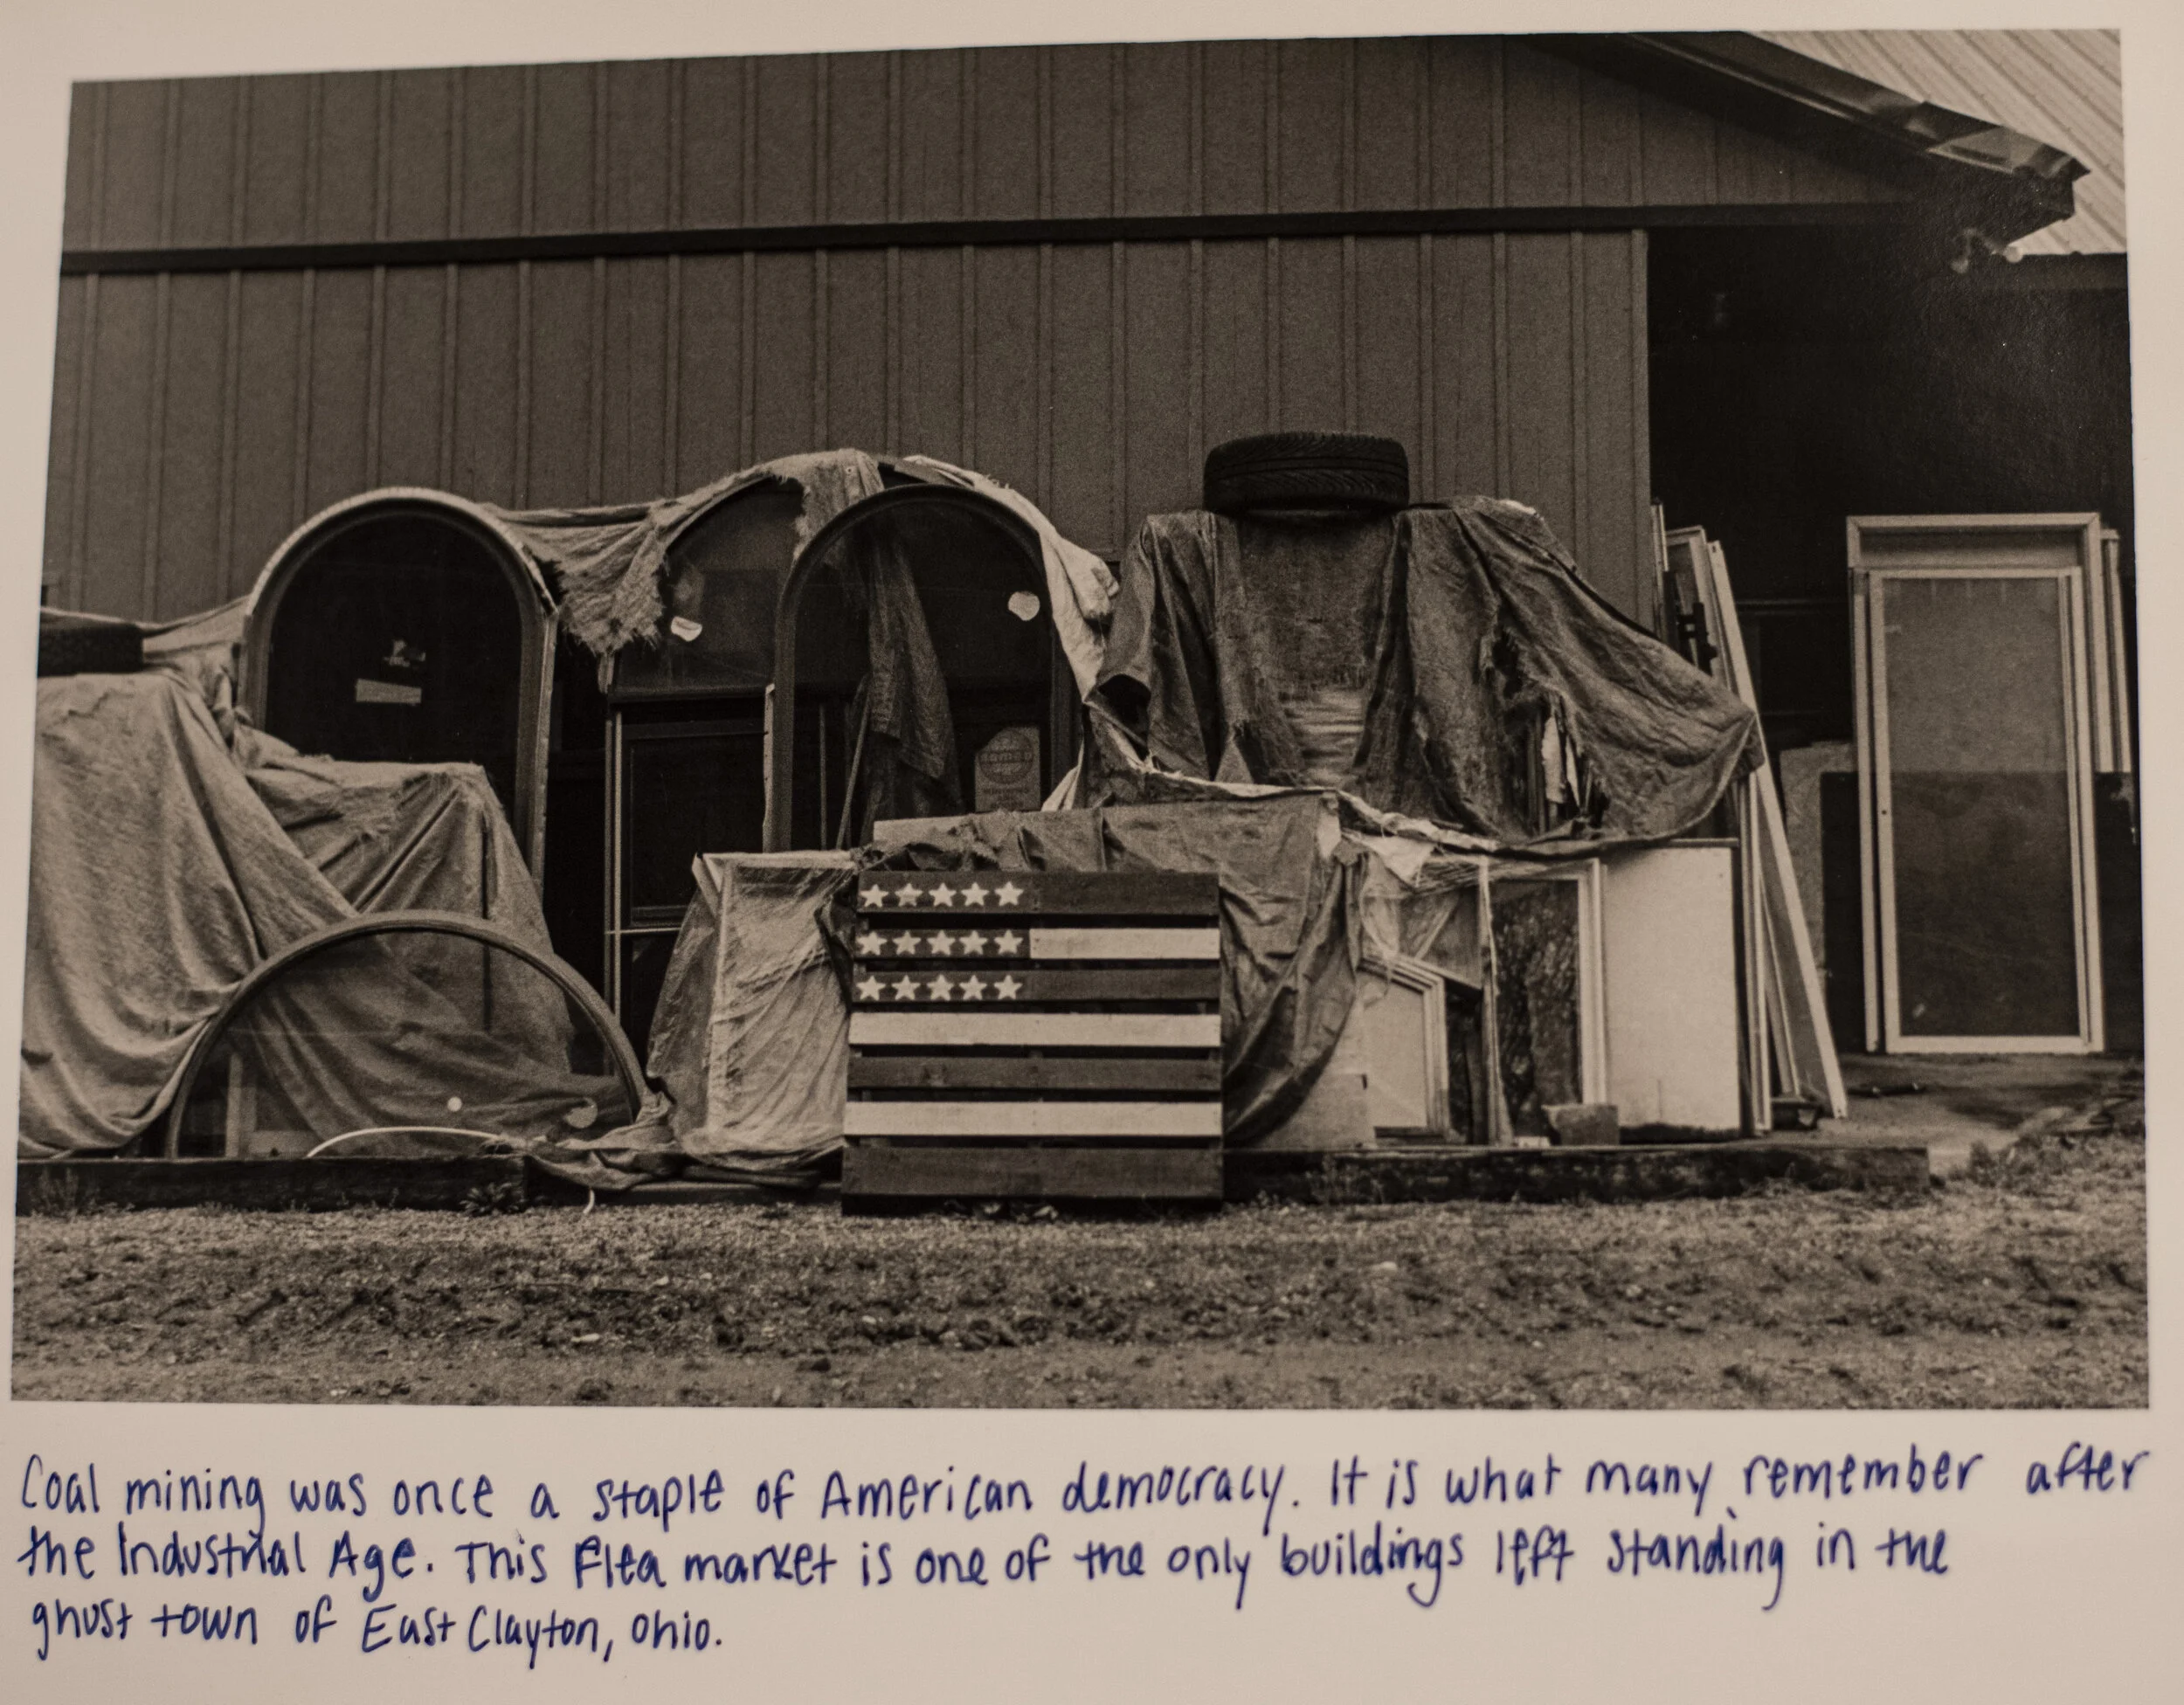 Coal mining was once a staple of American democracy. It is what many remember after
the Industrial Age. This flea market is one of the only buildings left standing in the
ghost town of East Clayton, Ohio.